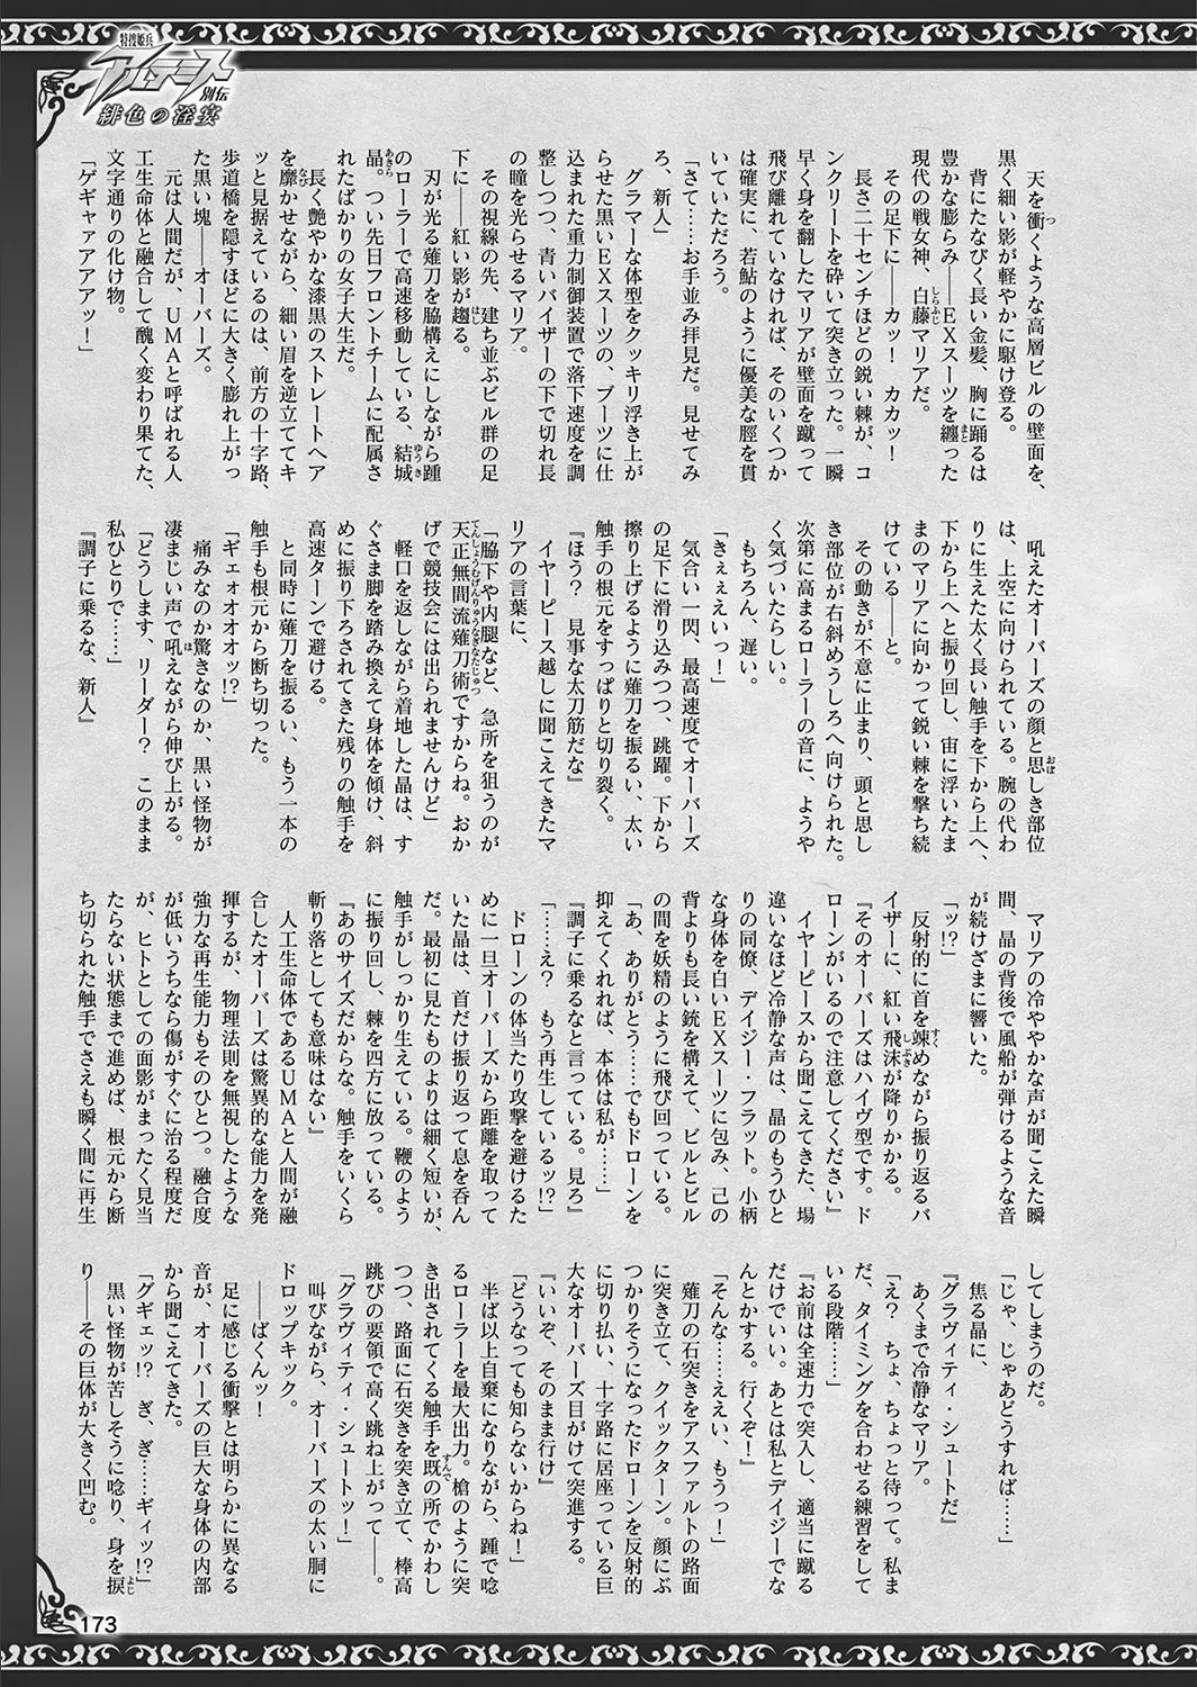 特捜姫兵
アルテミナ
別伝
緋色の淫宴
天を衝くような高層ビルの壁面を、
黒く細い影が軽やかに駆け登る。
背にたなびく長い金髪、胸に踊るは
豊かな膨らみ――EXスーツを纏った
現代の戦女神、白藤マリアだ。
その足下に――カッ!　カカッ!
長さ二十センチほどの鋭い棘が、コ
ンクリートを砕いて突き立った。一瞬
早く身を翻したマリアが壁面を蹴って
飛び離れていなければ、そのいくつか
は確実に、若鮎のように優美な脛を貫
いていただろう。
「さて……お手並み拝見だ。見せてみ
ろ、新人」
グラマーな体型をクッキリ浮き上が
らせた黒いEXスーツの、ブーツに仕
込まれた重力制御装置で落下速度を調
整しつつ、青いバイザーの下で切れ長
の瞳を光らせるマリア。
その視線の先、建ち並ぶビル群の足
下に――紅い影が趨る。
刃が光る薙刀を脇構えにしながら踵
のローラーで高速移動している、結城
晶。つい先日フロントチームに配属さ
れたばかりの女子大生だ。
長く艶やかな漆黒のストレートヘア
を靡かせながら、細い眉を逆立ててキ
ッと見据えているのは、前方の十字路、
歩道橋を隠すほどに大きく膨れ上がっ
た黒い塊――オーバーズ。
元は人間だが、UMAと呼ばれる人
工生命体と融合して醜く変わり果てた、
文字通りの化け物。
「ゲギャァアアアッ!」
吼えたオーバーズの顔と思しき部位
は、上空に向けられている。腕の代わ
りに生えた太く長い触手を下から上へ、
下から上へと振り回し、宙に浮いたま
まのマリアに向かって鋭い棘を撃ち続
けている――と。
その動きが不意に止まり、頭と思し
き部位が右斜めうしろへ向けられた。
次第に高まるローラーの音に、ようや
く気づいたらしい。
もちろん、遅い。
「きぇぇえいっ!」
気合い一閃、最高速度でオーバーズ
の足下に滑り込みつつ、跳躍。下から
擦り上げるように薙刀を振るい、太い
触手の根元をすっぱりと切り裂く。
『ほう?　見事な太刀筋だな』
イヤーピース越しに聞こえてきたマ
リアの言葉に、
「脇下や内腿など、急所を狙うのが
天正無間流薙刀術ですからね。おか
げで競技会には出られませんけど」
軽口を返しながら着地した晶は、す
ぐさま脚を踏み換えて身体を傾け、斜
めに振り下ろされてきた残りの触手を
高速ターンで避ける。
と同時に薙刀を振るい、もう一本の
触手も根元から断ち切った。
「ギェォオオオッ!?」
痛みなのか驚きなのか、黒い怪物が
凄まじい声で吼えながら伸び上がる。
「どうします、リーダー?　このまま
私ひとりで……」
『調子に乗るな、新人』
マリアの冷ややかな声が聞こえた瞬
間、晶の背後で風船が弾けるような音
が続けざまに響いた。
「ッ!?」
反射的に首を竦めながら振り返るバ
イザーに、紅い飛沫が降りかかる。
『そのオーバーズはハイヴ型です。ド
ローンがいるので注意してください』
イヤーピースから聞こえてきた、場
違いなほど冷静な声は、晶のもうひと
りの同僚、デイジー・フラット。小柄
な身体を白いEXスーツに包み、己の
背よりも長い銃を構えて、ビルとビル
の間を妖精のように飛び回っている。
「あ、ありがとう……でもドローンを
抑えてくれれば、本体は私が……」
『調子に乗るなと言っている。見ろ』
「……え?　もう再生しているッ!?」
ドローンの体当たり攻撃を避けるた
めに一旦オーバーズから距離を取って
いた晶は、首だけ振り返って息を呑ん
だ。最初に見たものよりは細く短いが、
触手がしっかり生えている。鞭のよう
に振り回し、棘を四方に放っている。
『あのサイズだからな。触手をいくら
斬り落としても意味はない』
人工生命体であるUMAと人間が融
合したオーバーズは驚異的な能力を発
揮するが、物理法則を無視したような
強力な再生能力もそのひとつ。融合度
が低いうちなら傷がすぐに治る程度だ
が、ヒトとしての面影がまったく見当
たらない状態まで進めば、根元から断
ち切られた触手でさえも瞬く間に再生
してしまうのだ。
「じゃ、じゃあどうすれば……」
焦る晶に、
『グラヴィティ・シュートだ』
あくまで冷静なマリア。
「え?　ちょ、ちょっと待って。私ま
だ、タイミングを合わせる練習をして
いる段階……」
『お前は全速力で突入し、適当に蹴る
だけでいい。あとは私とデイジーでな
んとかする。行くぞ!』
「そんな……ええい、もうっ!」
薙刀の石突きをアスファルトの路面
に突き立て、クイックターン。顔にぶ
つかりそうになったドローンを反射的
に切り払い、十字路に居座っている巨
大なオーバーズ目がけて突進する。
『いいぞ、そのまま行け』
「どうなっても知らないからね!」
半ば以上自棄になりながら、踵で唸
るローラーを最大出力。槍のように突
き出されてくる触手を既の所でかわし
つつ、路面に石突きを突き立て、棒高
跳びの要領で高く跳ね上がって――。
「グラヴィティ・シュートッ!」
叫びながら、オーバーズの太い胴に
ドロップキック。
――ばくんッ!
足に感じる衝撃とは明らかに異なる
音が、オーバーズの巨大な身体の内部
から聞こえてきた。
「グギェッ!?　ぎ、ぎ……ギィッ!?」
黒い怪物が苦しそうに唸り、身を捩
り――その巨体が大きく凹む。
173